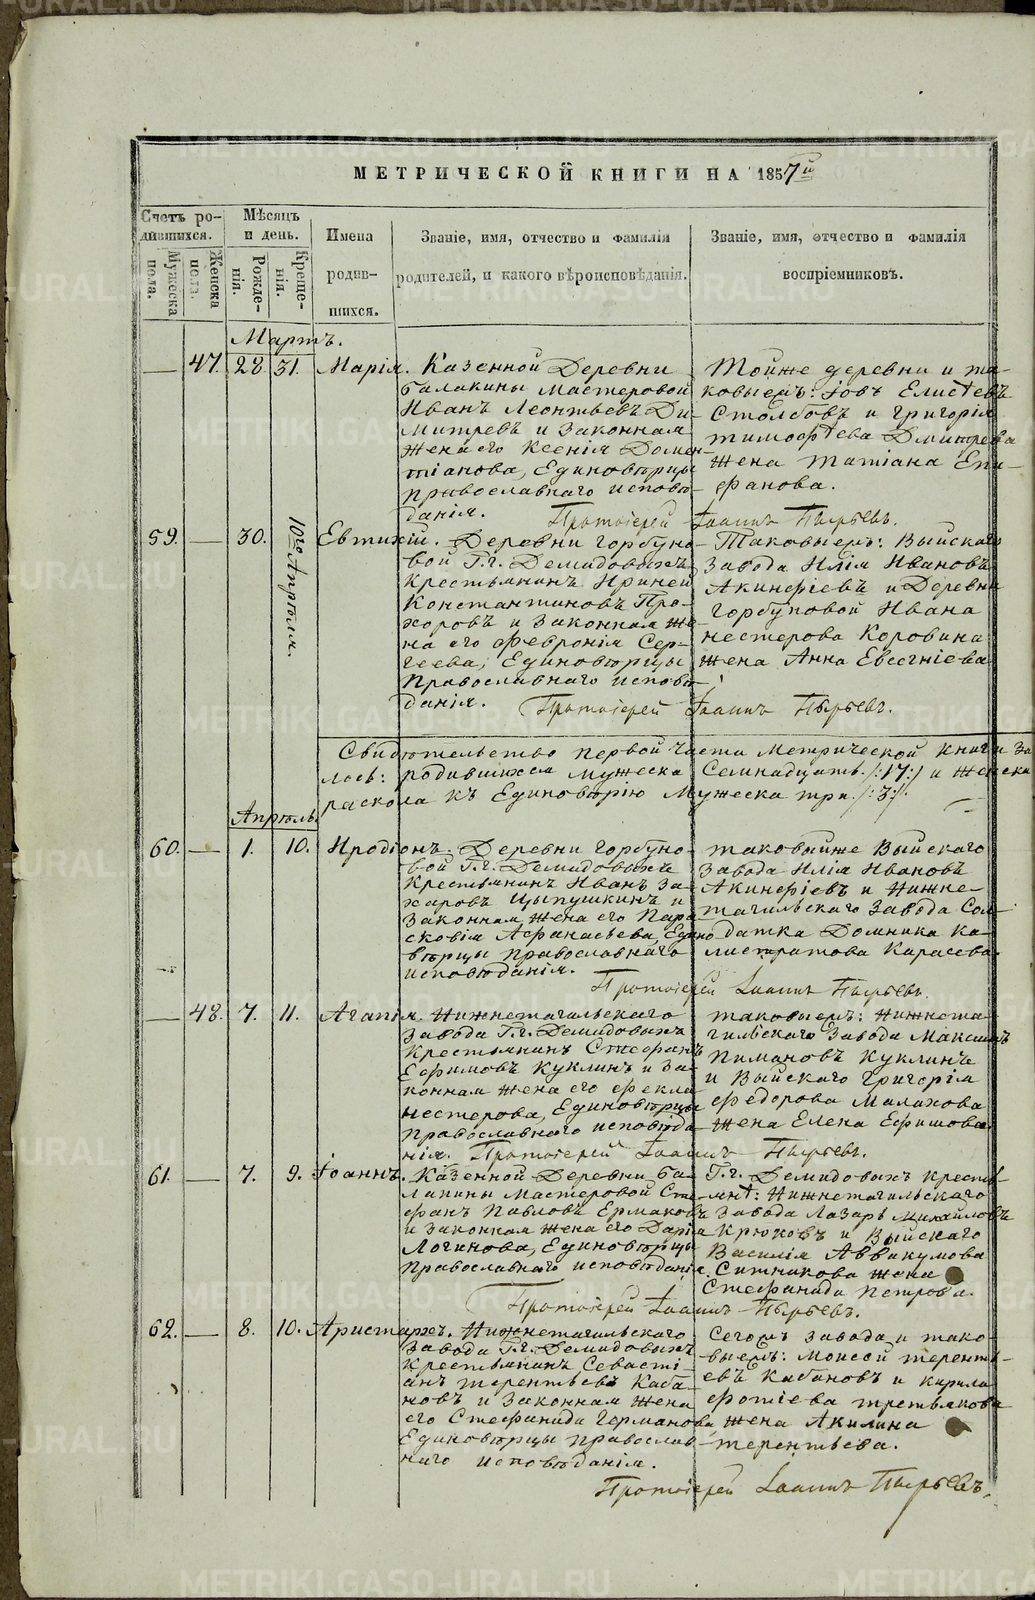 МЕТРИЧЕСКОЙ КНИГИ НА 1857й
Счетъ ро-
дившихся.
Мѣсяцъ
и день.
Мужеска
пола.
Женска
пола.
Рожде-
нія.
Креще-
нія.
Имена
родив-
шихся.
Званіе, имя, отчество и фамилія
родителей, и какого вѣроисповѣданія.
Званіе, имя, отчество и фамилія
воспріемниковъ.
Мартъ.
47. 28 31. Марія.
Казенной Деревни
балакины Мастеровой
Иванъ Леонтьевъ Ди-
митревъ и Законная
Жена его Ксенія Домен-
тіанова, Единовѣрцы
православнаго исповѣ-
данія.
Тойже деревни и та-
ковыемъ: Іовъ Елисѣевъ
Столбовъ и Григорія
тимофѣева Дмитрева
жена Татіана Епи-
фанова.
Протоіерей Іоаннъ Пырьевъ.
59. 30. 10го Апрѣля. Евтихій.
Деревни Горбуно-
вой Г.г. Демидовыхъ
Крестьянинъ Ириней
Константиновъ Про-
хоровъ и Законная Же-
на его Февронія Сер-
геева, Единовѣрцы
Православнаго исповѣ-
данія.
Таковыемъ: Выйскаго
Завода Илія Ивановъ
Акинфіевъ и Деревни
Горбуновой Ивана
нестерова Коровина
жена Анна Евсегніева
Протоіерей Іоаннъ Пырьевъ.
Свидѣтельство первой части Метрической Книги За
лось: родившихся мужеска Семнадцать /:17:/ и Женска
раскола къ Единовѣрію Мужеска три /:3:/.
Апрѣль.
60. 1. 10. Иродіонъ.
Деревни Горбуно-
вой Г.г. Демидовыхъ
Крестьянинъ Иванъ За-
харовъ Цыпушкинъ и
Законная жена его Пара-
сковія Афанасьева, Едино
вѣрцы православнаго
исповѣданія.
таковыйже Выйскаго
Завода Илія Ивановъ
Акинфіевъ и Нижне-
тагильскаго Завода Сол-
датка Домника Ка-
листратова Карасева.
Протоіерей Іоаннъ Пырьевъ.
48. 7. 11. Агапія.
Нижнетагильскаго
Завода Г.г. Демидовыхъ
Крестьянинъ Стефанъ
Ефимовъ Куклинъ и За-
конная жена его Фекла
нестерова, Единовѣрцы
Православнаго исповѣда-
нія.
таковыемъ: Нижнета-
гильскаго Завода Максимъ
Пимановъ Куклинъ
и Выйскаго Григорія
Федорова Малахова
жена Елена Ефимова
Протоіерей Іоаннъ Пырьевъ.
61. 7. 9. Іоаннъ.
Казенной Деревни ба-
лакины Мастеровой Сте-
фанъ Павловъ Ермаковъ
и Законная жена его Дарія
Логинова, Единовѣрцы
Православнаго исповѣданія.
Г.г. Демидовыхъ Кресть-
янѣ: Нижнетагильскаго
Завода Лазарь Михайловъ
Крюковъ и Выйскаго
Василія Аввакумова
Ситникова жена
Стефанида Петрова.
Протоіерей Іоаннъ Пырьевъ.
62. 8. 10. Аристархъ.
Нижнетагильскаго
Завода Г.г. Демидовыхъ
Крестьянинъ Севасті-
анъ терентьевъ Каба-
новъ и Законная жена
его Стефанида Германова
Единовѣрцы православ-
наго исповѣданія.
Сегожъ завода и тако-
выемъ: Моисей терентъ-
евъ Кабановъ и Кирила
Фотіева третьякова
жена Акилина
терентьева.
Протоіерей Іоаннъ Пырьевъ.
METRIKI.GASO-URAL.RU